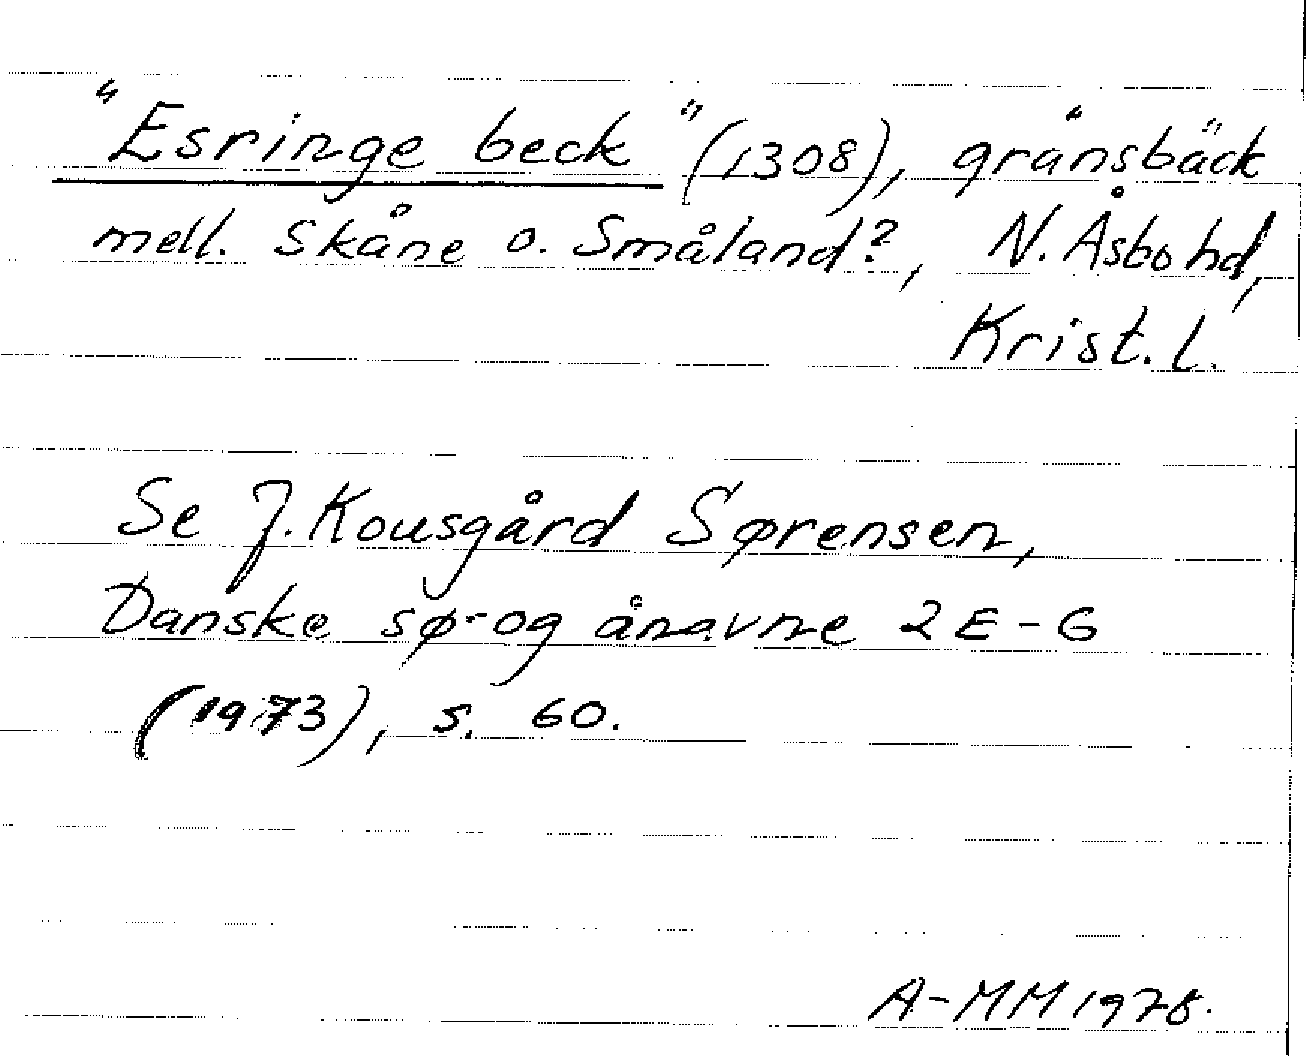 "Esringe beck" (1308), gränsbäck
mell. Skåne o. Småland?, N. Åsbo hd,
Krist. l.
Se J. Kousgård Sørensen,
Danske sø- og ånavne 2 E-G
(1973), s. 60.
A-MM 1978.